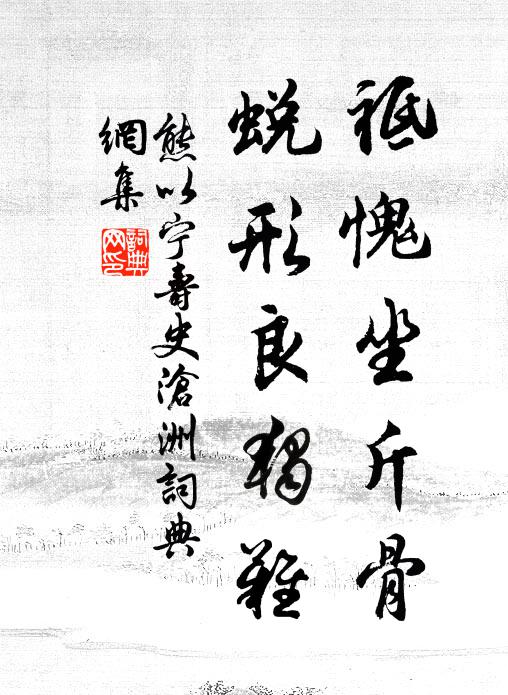 祗愧坐斤骨
蜕形良獨難
熊以宁壽史滄洲詞典
網集
詞典
网印